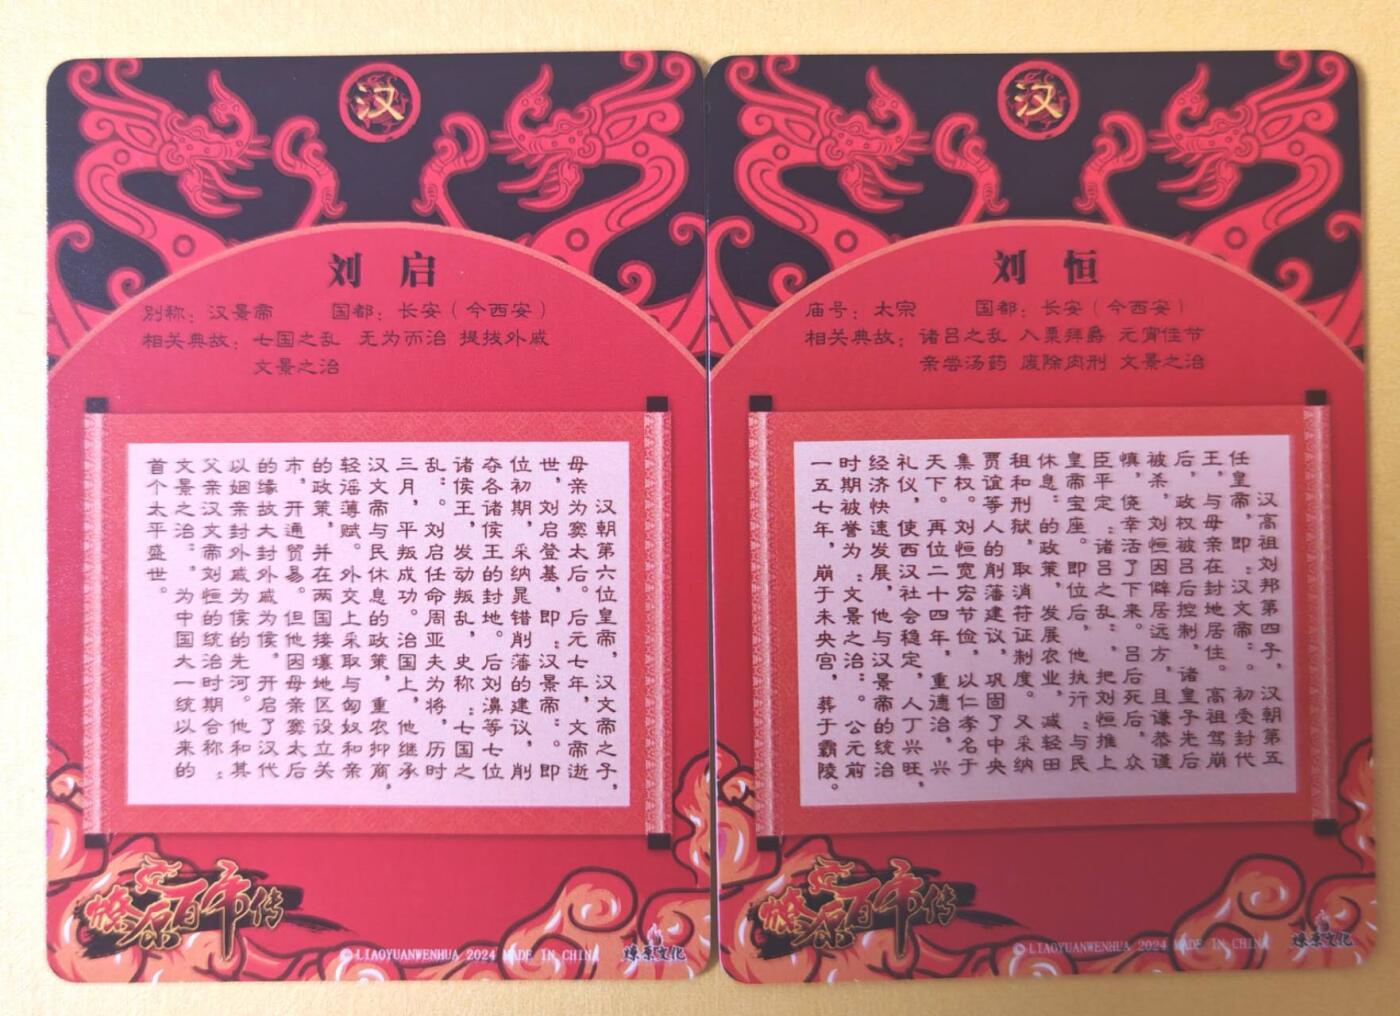 汉
刘启
别称：汉景帝 国都：长安（今西安）
相关典故：七国之乱 无为而治 提拔外戚
文景之治
汉朝第六位皇帝，汉文帝之子，
母亲为窦太后。后元七年，文帝逝
世，刘启登基，即“汉景帝”。即
位初期，采纳晁错削藩的建议，削
夺各诸侯王的封地。后刘濞等七位
诸侯王，发动叛乱，史称“七国之
乱”。刘启任命周亚夫为将，历时
三月，平叛成功。治国上，他继承
汉文帝与民休息的政策，重农抑商，
轻谣薄赋。外交上采取与匈奴和亲
的政策，并在两国接壤地区设立关
市，开通贸易。但他因母亲窦太后
的缘故大封外戚为侯，开启了汉代
以姻亲封外戚为侯的先河。他和其
父亲汉文帝刘恒的统治时期合称“
文景之治”，为中国大一统以来的
首个太平盛世。
燎原百帝传
© LIAOYUANWENHUA 2024 MADE IN CHINA
燎原文化
汉
刘恒
庙号：太宗 国都：长安（今西安）
相关典故：诸吕之乱 入粟拜爵 元宵佳节
亲尝汤药 废除肉刑 文景之治
汉高祖刘邦第四子，汉朝第五
任皇帝，即“汉文帝”。初受封代
王，与母亲在封地居住。高祖驾崩
后，政权被吕后控制，诸皇子先后
被杀，刘恒因僻居远方，且谦恭谨
慎，侥幸活了下来。吕后死后，众
臣平定“诸吕之乱”，把刘恒推上
皇帝宝座。即位后，他执行“与民
休息”的政策，发展农业，减轻田
租和刑狱，取消符证制度。又采纳
贾谊等人的削藩建议，巩固了中央
集权。刘恒宽宏节俭，以仁孝名于
天下。再位二十四年，重德治，兴
礼仪，使西汉社会稳定，人丁兴旺，
经济快速发展，他与汉景帝的统治
时期被誉为“文景之治”。公元前
一五七年，崩于未央宫，葬于霸陵。
燎原百帝传
© LIAOYUANWENHUA 2024 MADE IN CHINA
燎原文化